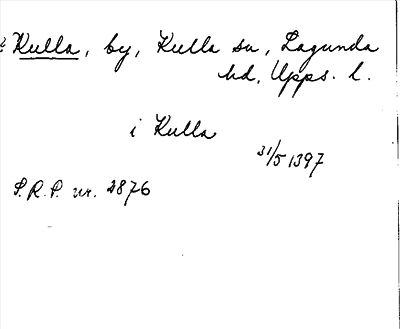 Kulla, by, Kulla sn, Lagunda
hd, Upps. l.
i Kulla
31/5 1397
S.R.P. nr. 2876